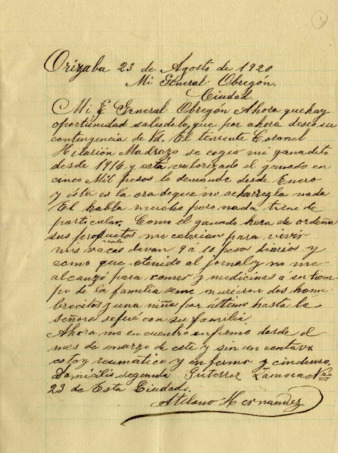 Orizaba 23 de Agosto de 1920
Mi General Obregón.
Ciudad
Mi General Obregón Ahora que hay
oportunidad saludale que por ahora deseo su
contingencia de Ud. El teniente Coronel
Hilarión Madrazo se cogio mi ganadito
desde 1916 y está valorizado el ganado en
cinco Mil pesos lo demande desde Enero
y ésta es la ora de que no se arregla nada
El habla mucho pero nada tiene de
particular. Como el ganado hera de ordeña
sus productos me valorian para vivir
mis vacas davan 9 á 10 pesos diarios y
como que atenido al jornal y no me
alcanzó para comer y medicinas á su tiem
po de la familia se me murieron dos hom
brecitos y una niña por ultimo hasta la
señora se fué con su familia.
Ahora me encuentro enfermo desde el
mes de marzo de este y sin un centavo
estoy reumático y enfermo y sin deuso.
Domicilio segunda Gutierrez Zamora No.
23 de Esta Ciudad.
Atilano Hernandez